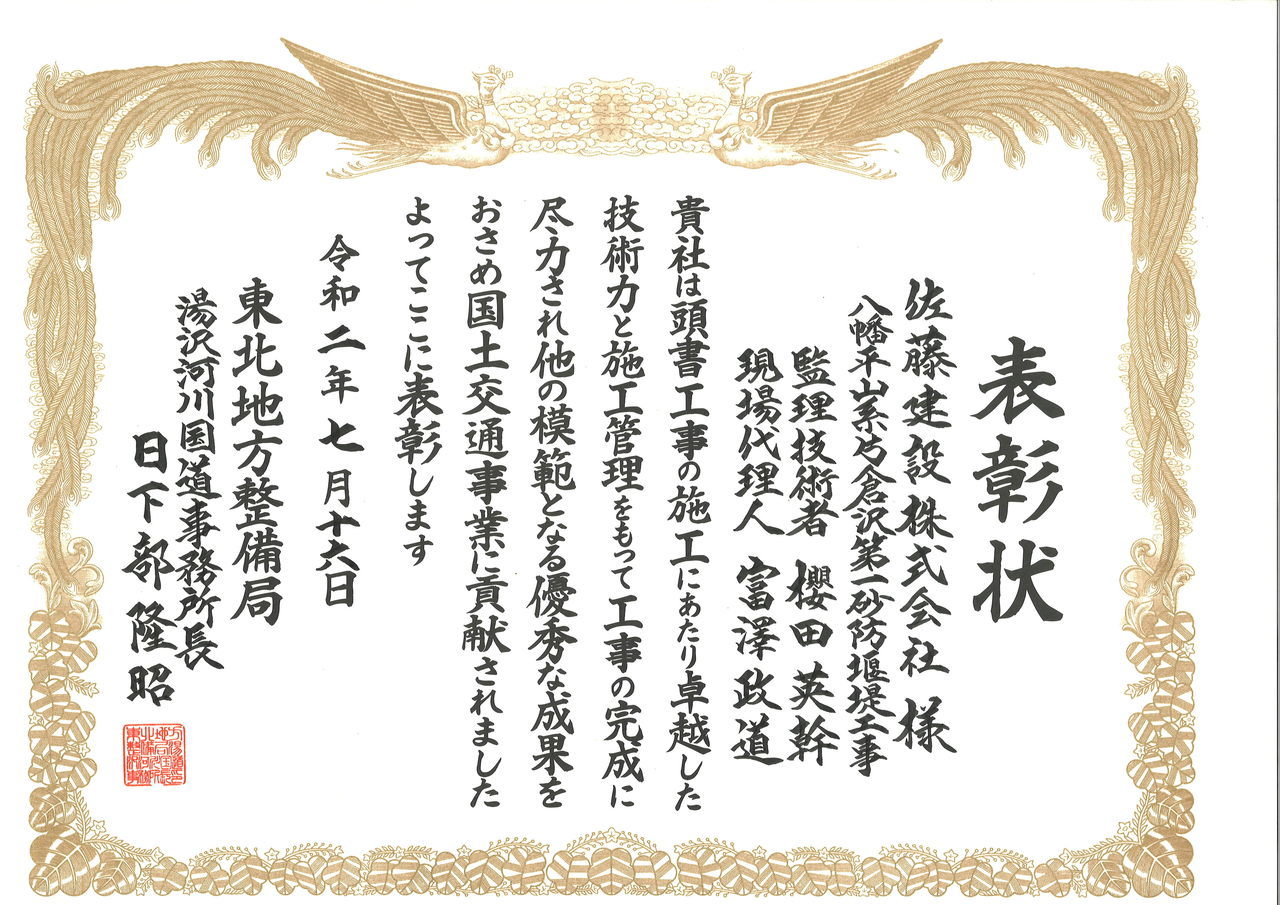 表彰状
佐藤建設株式会社 様
八幡平山系片倉沢第一砂防堰堤工事
監理技術者 櫻田英幹
現場代理人 富澤政道
貴社は頭書工事の施工にあたり卓越した
技術力と施工管理をもって工事の完成に
尽力され他の模範となる優秀な成果を
おさめ国土交通事業に貢献されました
よってここに表彰します
令和二年七月十六日
東北地方整備局
湯沢河川国道事務所長
日下部隆昭